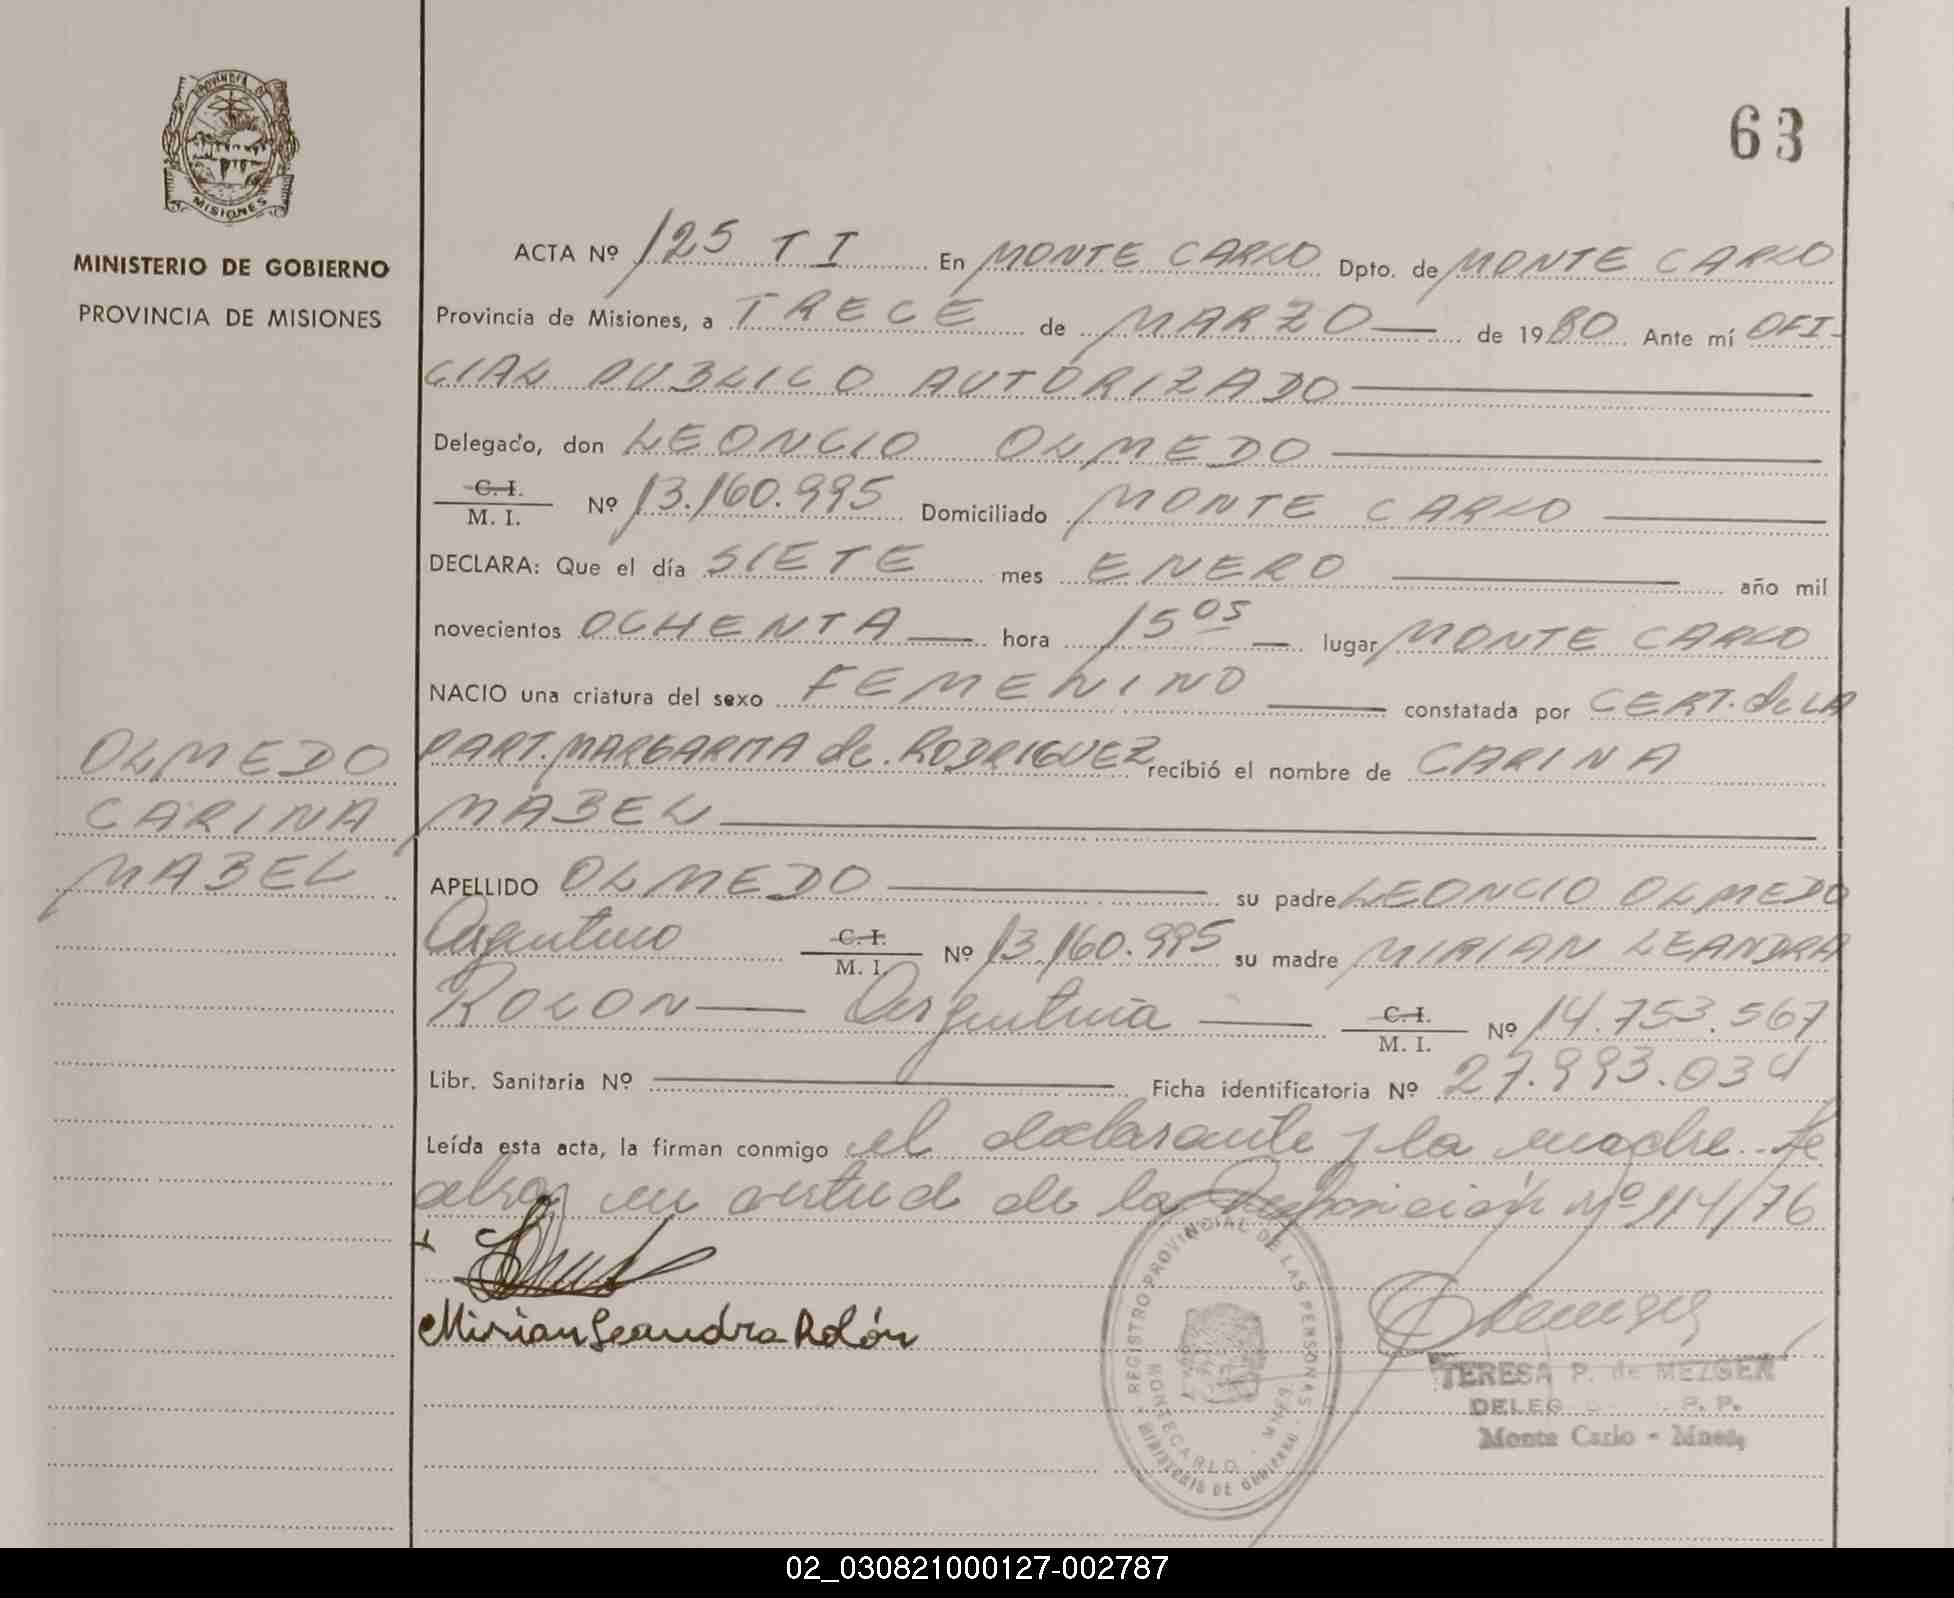 PROVINCIA DE
MISIONES
MINISTERIO DE GOBIERNO
PROVINCIA DE MISIONES
63
ACTA Nº 125 T I En MONTE CARLO Dpto. de MONTE CARLO
Provincia de Misiones, a TRECE de MARZO de 1980 Ante mí OFI-
CIAL PUBLICO AUTORIZADO
Delegado, don LEONCIO OLMEDO
C. I. / M. I. Nº 13.160.995 Domiciliado MONTE CARLO
DECLARA: Que el día SIETE mes ENERO año mil
novecientos OCHENTA hora 15 05 lugar MONTE CARLO
NACIO una criatura del sexo FEMENINO constatada por CERT. de LA
PART. MARGARITA de RODRIGUEZ recibió el nombre de CARINA
MABEL
APELLIDO OLMEDO su padre LEONCIO OLMEDO
Argentino C. I. / M. I. Nº 13.160.995 su madre MIRIAN LEANDRA
ROLON Argentina C. I. / M. I. Nº 14.753.567
Libr. Sanitaria Nº Ficha identificatoria Nº 27.993.034
Leída esta acta, la firman conmigo el declarante y la madre. Se
labra en virtud de la Disposición Nº 114/76
OLMEDO
CARINA
MABEL
Mirian Leandra Rolón
REGISTRO PROVINCIAL DE LAS PERSONAS
MONTECARLO - MNES
MINISTERIO DE GOBIERNO
TERESA P. de MEZGER
DELEG P. P.
Monte Carlo - Mnes,
02_030821000127-002787